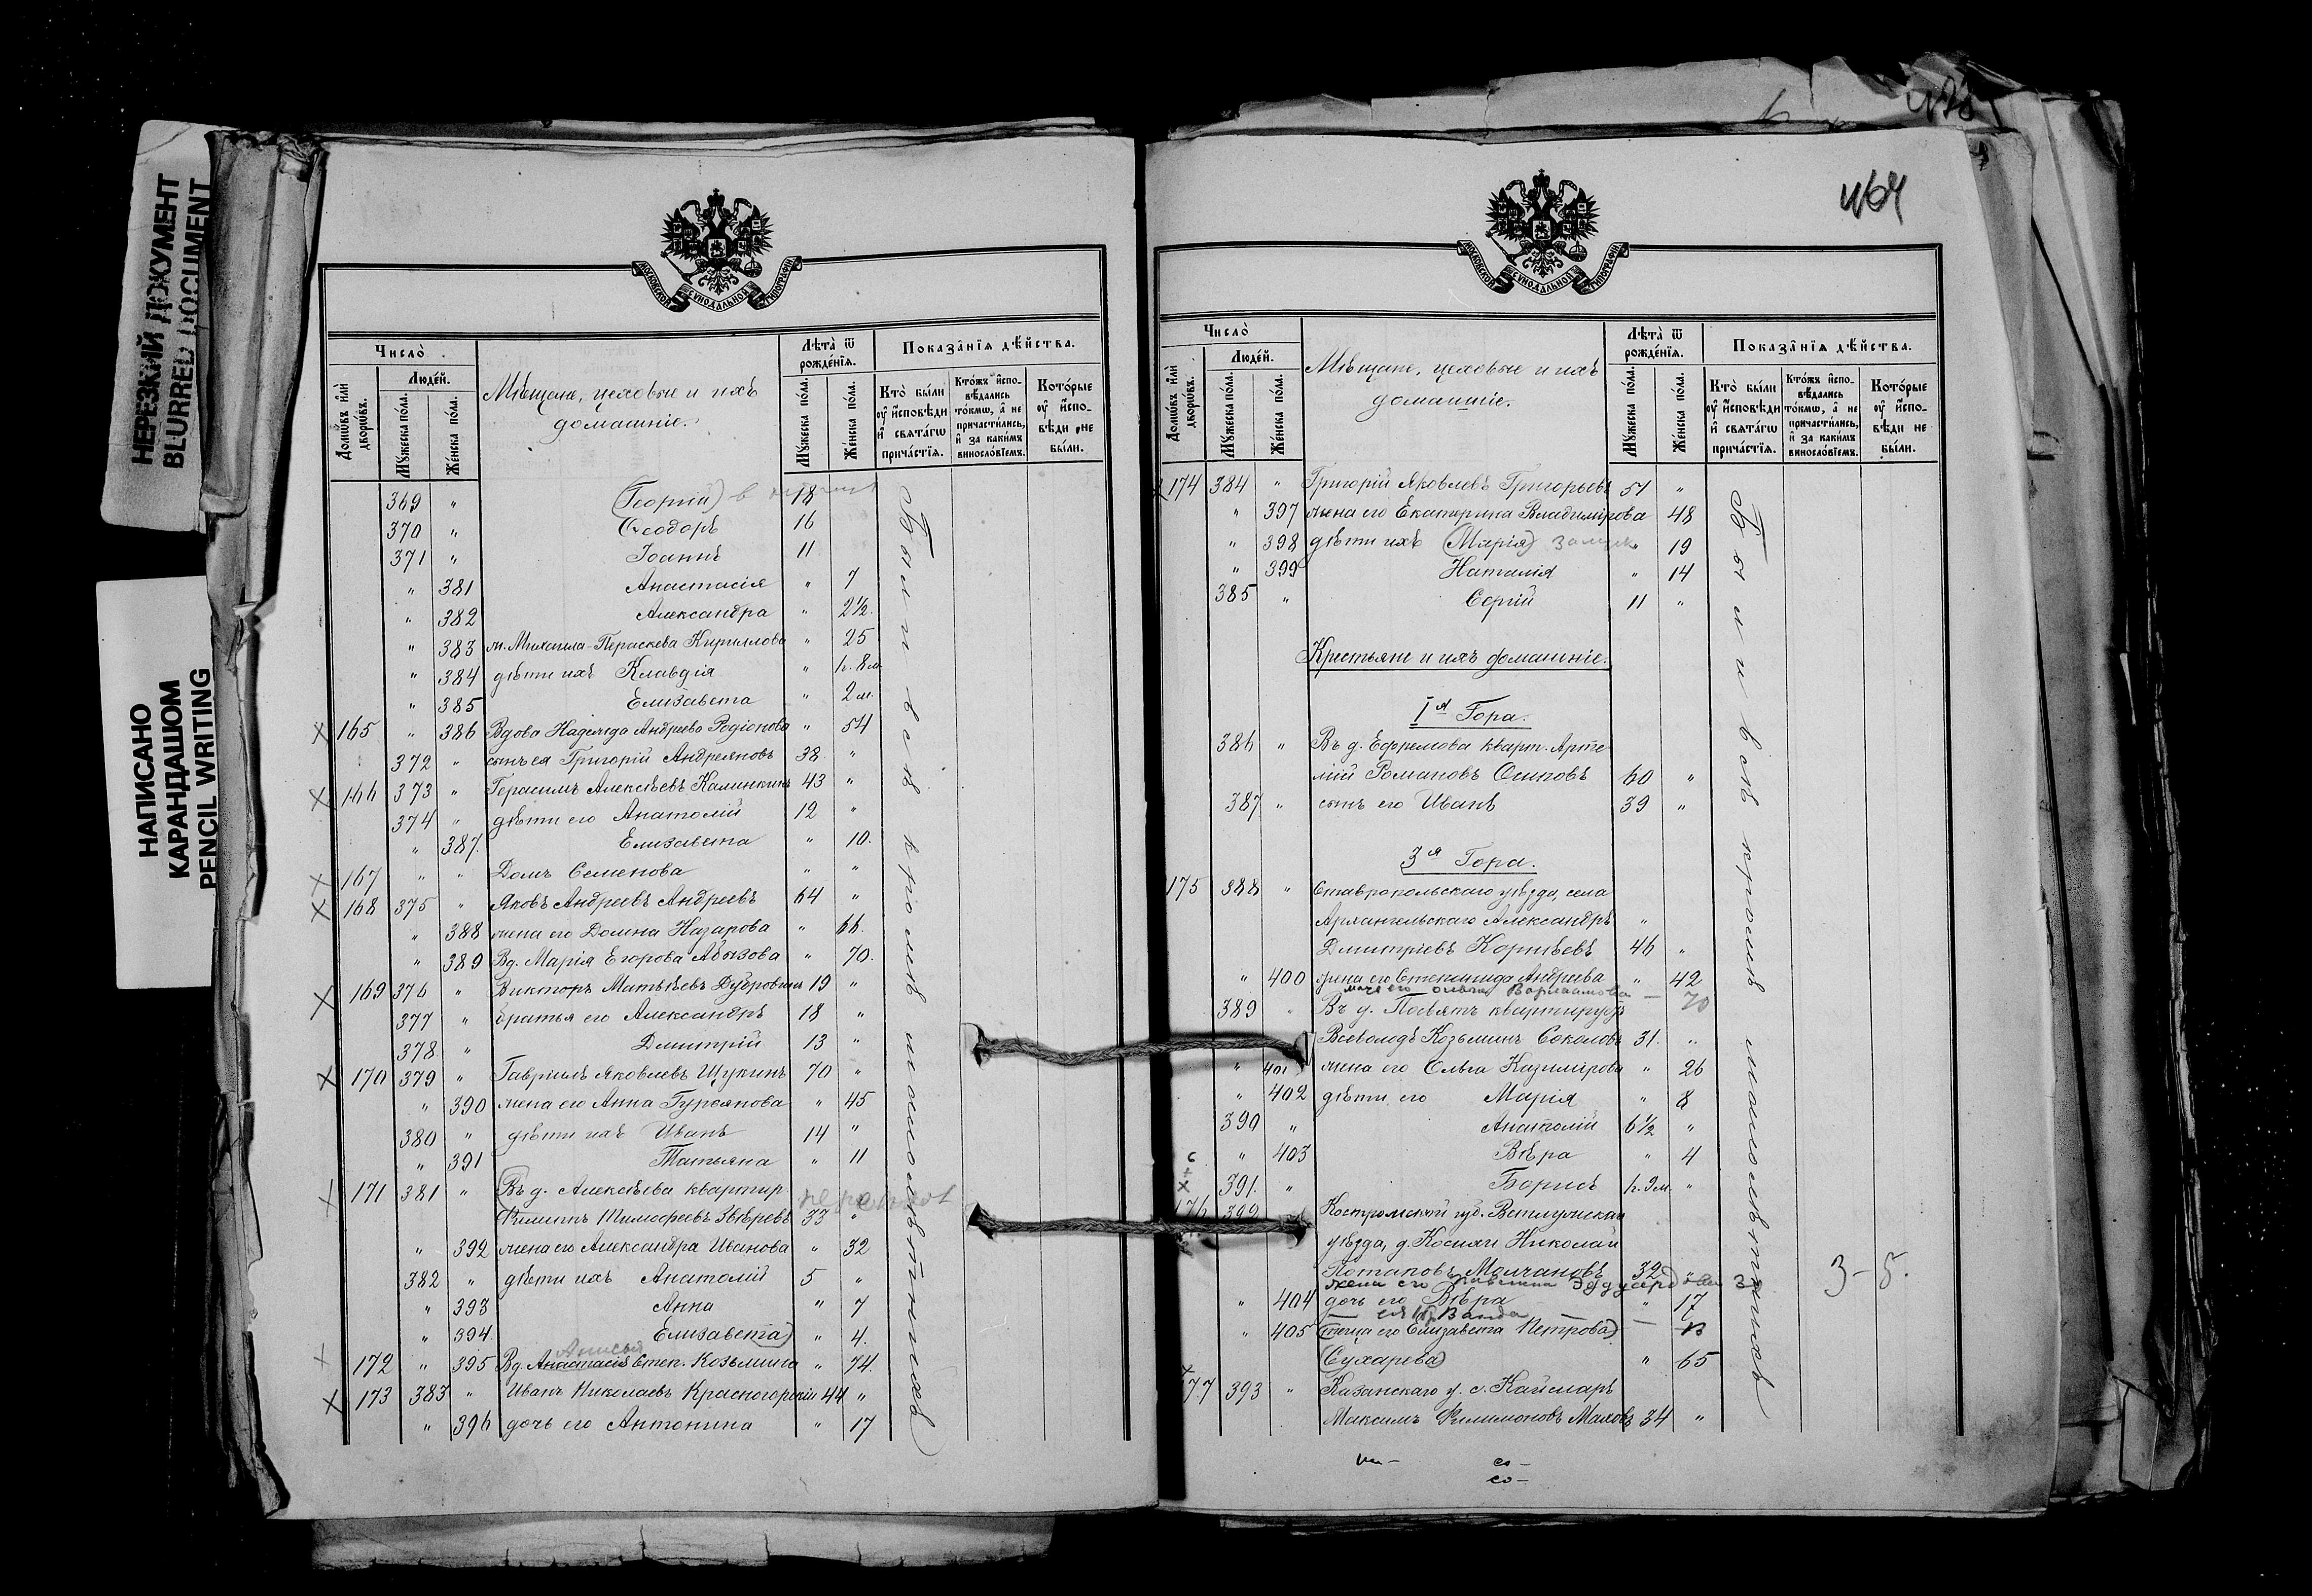 НЕРЕЗКИЙ ДОКУМЕНТ
BLURRED DOCUMENT
НАПИСАНО
КАРАНДАШОМ
PENCIL WRITING
МОСКОВСКОЙ СѴНОДАЛЬНОЙ ТИПОГРАФІИ
Число̀
Домѡ́въ и҆лѝ дворѡ́въ.
Люде́й.
Мꙋ́жеска по́ла.
Же́нска по́ла.
Мѣщане, цеховые и ихъ
домашніе.
Лѣта̀ ѿ рожде́нїѧ.
Мꙋ́жеска по́ла.
Же́нска по́ла.
Показа̑нїѧ дѣ́йства.
Кто̀ бы́ли ᲂу҆ и҆́сповѣди и҆ свѧта́гѡ причастїѧ.
Кто́жъ и҆спо-вѣдались то́кмѡ, а҆ не причасти́лись, и҆ за каки́мъ винословїемъ.
Кото́рые ᲂу҆ и҆́спо-вѣди не бы́ли.
369 " (Георгій) в 18
370 " Ѳеодоръ 16
371 " Іоаннъ 11
" 381 Анастасія " 7
" 382 Александра " 2½.
" 383 ж. Михаила - Пераскева Кириллова " 25
" 384 дѣти ихъ Клавдія " 1 г. 8 м.
" 385 Елизавета " 2 м.
165 " 386 Вдова Надежда Андреева Родіонова " 54
372 " сынъ ея Григорій Андреяновъ 38 "
166 373 " Герасимъ Алексѣевъ Калинкинъ 43 "
374 " дѣти его Анатолій 12 "
" 387. Елизавета " 10.
167 " " Домъ Семенова " "
168 375 " Яковъ Андреевъ Андреевъ 64 "
" 388 жена его Домна Назарова " 66.
" 389 Вд. Марія Егорова Абызова " 70.
169 376 " Викторъ Матвѣевъ Дубровинъ 19 "
377 " братья его Александръ 18 "
378 " Дмитрій 13 "
170 379 " Гавріилъ Яковлевъ Щукинъ 70 "
" 390 жена его Анна Гурьянова " 45
380 " дѣти ихъ Иванъ 14 "
" 391 Татьяна " 11
171 381 " Въ д. Алексѣева квартир.
Филиппъ Тимофеевъ Звѣревъ 33 "
" 392 жена его Александра Иванова " 32
382 " дѣти ихъ Анатолій 5 "
" 393 Анна " 7
" 394 Елизавета) " 4.
Анисья
172 " 395 Вд. Анастасія Степ. Козьмина " 74.
173 383 " Иванъ Николаевъ Красногорскій 44 "
" 396 дочь его Антонина " 17
Были всѣ кромѣ малолѣтнихъ
464
МОСКОВСКОЙ СѴНОДАЛЬНОЙ ТИПОГРАФІИ
Число̀
Домѡ́въ и҆лѝ дворѡ́въ.
Люде́й.
Мꙋ́жеска по́ла.
Же́нска по́ла.
Мѣщане, цеховые и ихъ
домашніе.
Лѣта̀ ѿ рожде́нїѧ.
Мꙋ́жеска по́ла.
Же́нска по́ла.
Показа̑нїѧ дѣ́йства.
Кто̀ бы́ли ᲂу҆ и҆́сповѣди и҆ свѧта́гѡ причастїѧ.
Кто́жъ и҆спо-вѣдались то́кмѡ, а҆ не причасти́лись, и҆ за каки́мъ винословїемъ.
Кото́рые ᲂу҆ и҆́спо-вѣди не бы́ли.
174 384 " Григорій Яковлевъ Григорьевъ 51 "
" 397 жена его Екатерина Владимірова 48
" 398 дѣти ихъ (Марія) замуж " 19
" 399 Наталія " 14
385 " Сергій 11 "
Крестьяне и ихъ домашніе.
1я Гора.
386 " Въ д. Ефремова кварт. Арте-
мій Романовъ Осиповъ 60 "
387 " сынъ его Иванъ 39 "
3я Гора.
175 388 " Ставропольскаго уѣзда, села
Архангельскаго Александръ "
Дмитріевъ Корнѣевъ 46 "
" 400 жена его Степанида Андреева " 42
мать его Варлаамова — 70
389 " Въ д. Посвятъ квартируютъ
Всеволодъ Козьминъ Соколовъ 31. "
" 401 жена его Ольга Казимірова " 26
" 402 дѣти его Марія " 8
390 " Анатолій 6½ "
" 403 Вѣра " 4
391. " Борисъ 1 г. 9 м. "
176 392 Костромской губ. Ветлужскаго
уѣзда, д. Косиян Николай
Потаповъ Молчановъ 32 "
жена его Эдуардова
" 404 дочь его Вѣра " 17
Ванда —
" 405 (теща его Елизавета Петрова)
(Сухарева) " 65
177 393 " Казанскаго у. с. Каймаръ
Максимъ Филимоновъ Маловъ 34 "
Были всѣ кромѣ малолѣтнихъ
3 - 5.